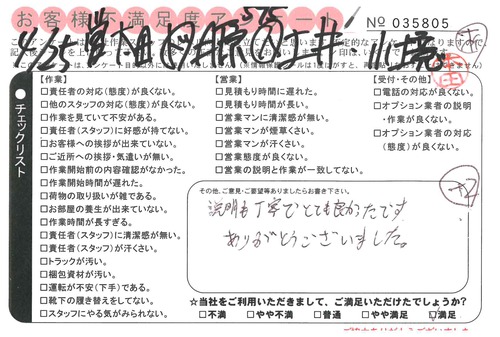 お客様不満足度アンケート
No 035805
【作業】
□責任者の対応(態度)が良くない。
□他のスタッフの対応(態度)が良くない。
□作業を見ていて不安がある。
□責任者(スタッフ)に好感が持てない。
□お客様への挨拶が出来ていない。
□ご近所への挨拶・気遣いが無い。
□作業開始前の内容確認がなかった。
□作業開始時間に遅れた。
□荷物の取り扱いが雑である。
□お部屋の養生が出来ていない。
□作業時間が長すぎる。
□責任者(スタッフ)に清潔感が無い。
□責任者(スタッフ)が汗くさい。
□トラックが汚い。
□梱包資材が汚い。
□運転が不安(下手)である。
□靴下の履き替えをしてない。
□スタッフにやる気がみられない。
【営業】
□見積もり時間に遅れた。
□見積もり時間が長い。
□営業マンに清潔感が無い。
□営業マンが煙草くさい。
□営業マンが汗くさい。
□営業態度が良くない。
□営業の説明と作業が一致してない。
【受付・その他】
□電話の対応が良くない。
□オプション業者の説明
・作業が良くない。
□オプション業者の対応
(態度)が良くない。
チェックリスト
その他、ご意見・ご要望等ありましたらお書き下さい。
説明も丁寧でとても良かったです
ありがとうございました。
☆当社をご利用いただきまして、ご満足いただけたでしょうか?
□不満 □やや不満 □普通 □やや満足 □満足